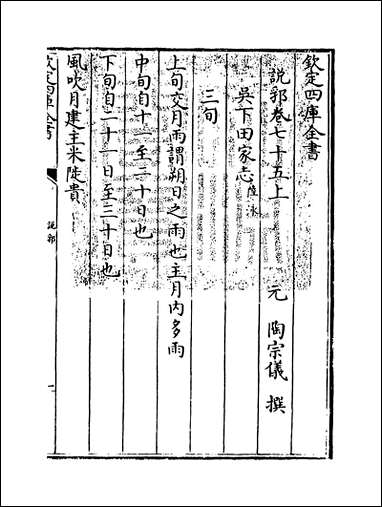 欽定四庫全書
說郛卷七十五上
元 陶宗儀 撰
吳下田家志 陸泳
三旬
上旬交月雨謂朔日之雨也主月內多雨
中旬自十一至二十日也
下旬自二十一日至三十日也
風吹月建主米陡貴
欽定四庫全書
說郛
一